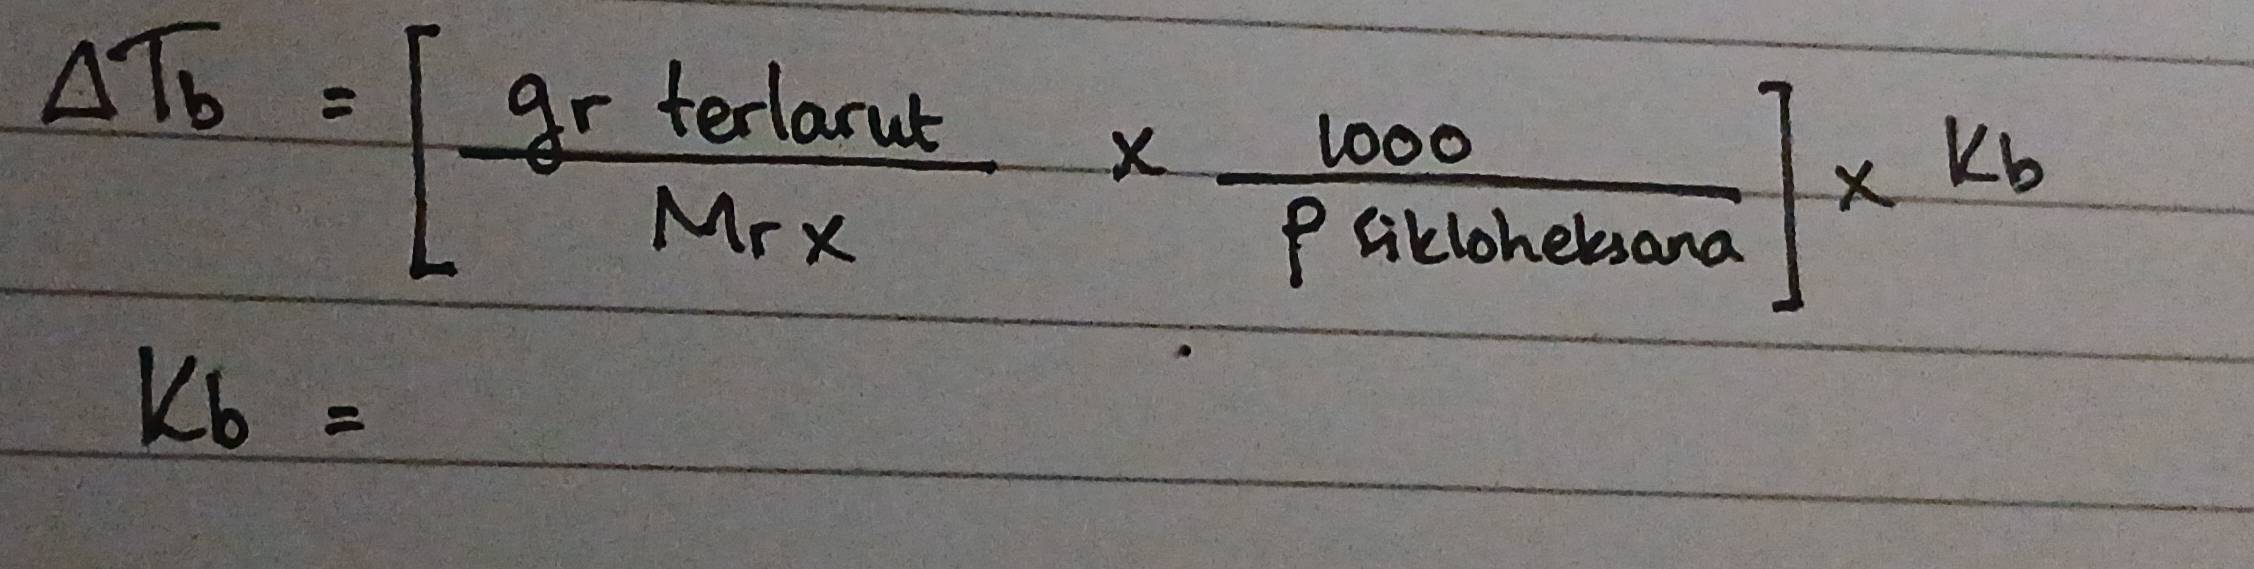 ΔTb = [ gr terlarut / Mr x × 1000 / ρ sikloheksana ] × Kb
Kb =